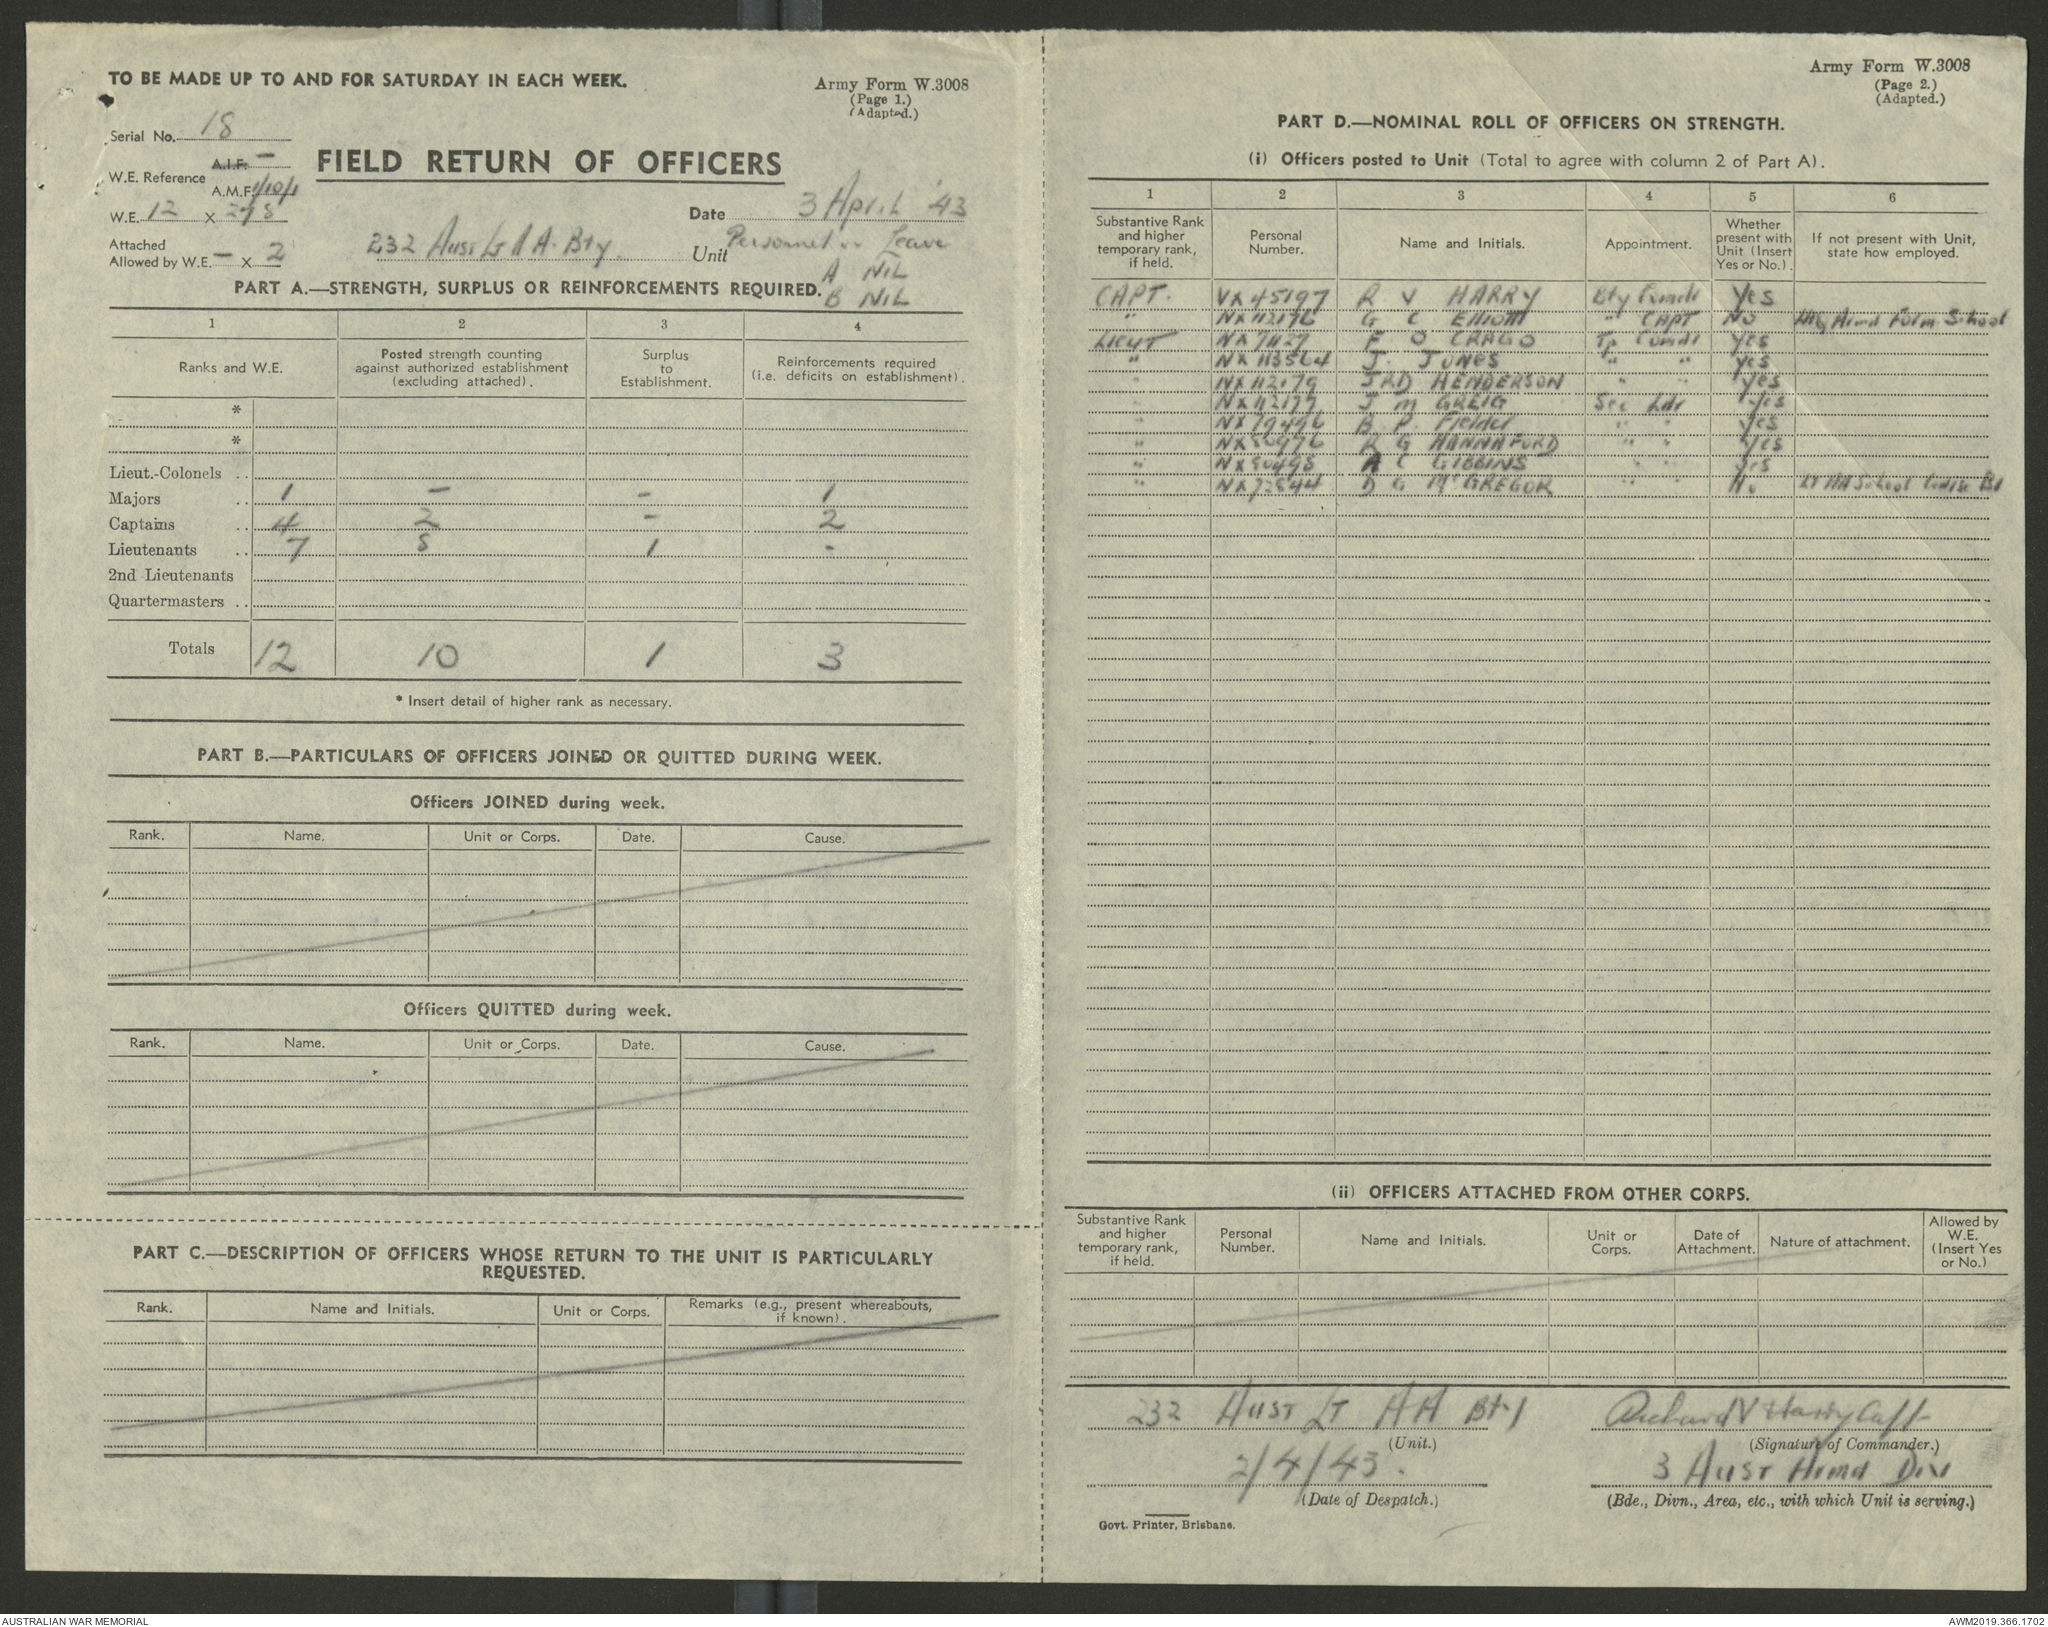 TO BE MADE UP TO AND FOR SATURDAY IN EACH WEEK.
Army Form W.3008
(Page 1.)
(Adapted.)
Serial No. 18
W.E. Reference A.I.F. –
A.M.F. 1/10/1
FIELD RETURN OF OFFICERS
W.E. 12 X 278
Date 3 April '43
Attached
Allowed by W.E. – X 2
232 Aust Lt A A Bty Unit
Personnel on Leave
A NIL
B NIL
PART A.—STRENGTH, SURPLUS OR REINFORCEMENTS REQUIRED.
1 2 3 4
Ranks and W.E.
Posted strength counting
against authorized establishment
(excluding attached).
Surplus
to
Establishment.
Reinforcements required
(i.e. deficits on establishment).
*
*
Lieut.-Colonels ..
Majors .. 1 – – 1
Captains .. 4 2 – 2
Lieutenants .. 7 8 1 -
2nd Lieutenants
Quartermasters ..
Totals 12 10 1 3
* Insert detail of higher rank as necessary.
PART B.—PARTICULARS OF OFFICERS JOINED OR QUITTED DURING WEEK.
Officers JOINED during week.
Rank. Name. Unit or Corps. Date. Cause.
Officers QUITTED during week.
Rank. Name. Unit or Corps. Date. Cause.
PART C.—DESCRIPTION OF OFFICERS WHOSE RETURN TO THE UNIT IS PARTICULARLY
REQUESTED.
Rank. Name and Initials. Unit or Corps. Remarks (e.g., present whereabouts,
if known).
Army Form W.3008
(Page 2.)
(Adapted.)
PART D.—NOMINAL ROLL OF OFFICERS ON STRENGTH.
(i) Officers posted to Unit (Total to agree with column 2 of Part A).
1 2 3 4 5 6
Substantive Rank
and higher
temporary rank,
if held.
Personal
Number.
Name and Initials.
Appointment.
Whether
present with
Unit (Insert
Yes or No.).
If not present with Unit,
state how employed.
CAPT. VX45197 R V HARRY Bty Comdr Yes
" NX112176 G C Elliott " CAPT No Armd Form School
Lieut F O CRAGO Tp Comdr Yes
" NX113564 J. JONES " " Yes
" NX112179 J R D HENDERSON " " Yes
" NX112177 J M GREIG Sec Ldr Yes
" NX79496 B P. Fielder " " Yes
" R G HANNAFORD " " Yes
" NX90495 A C GIBBINS " " Yes
" D G McGREGOR " " No School
(ii) OFFICERS ATTACHED FROM OTHER CORPS.
Substantive Rank
and higher
temporary rank,
if held.
Personal
Number.
Name and Initials.
Unit or
Corps.
Date of
Attachment.
Nature of attachment.
Allowed by
W.E.
(Insert Yes
or No.)
232 Aust LT AA Bty
(Unit.)
Richard V Harry Capt
(Signature of Commander.)
2/4/43.
(Date of Despatch.)
3 Aust Armd Div
(Bde., Divn., Area, etc., with which Unit is serving.)
Govt. Printer, Brisbane.
AUSTRALIAN WAR MEMORIAL
AWM2019.366.1702